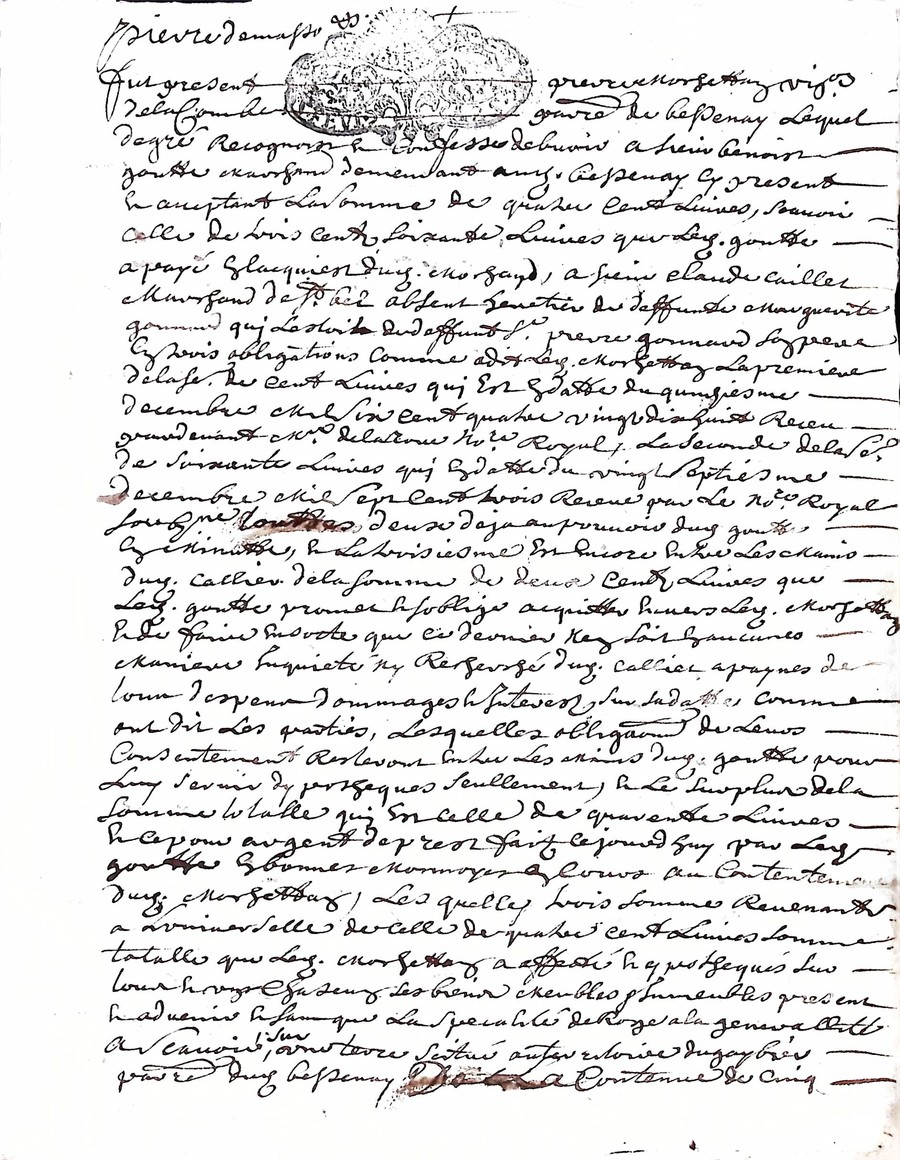 pierre demasso
fut present pierre Morhettay vig.on
de la Combe parre de bessenay Lequel
de gré Recognoist et Confesse debvoir a sieur benoist
goutte Marchand demeurant aud. bessenay Cy present
et aceptant La somme de quatre Cent Livres, scauoir
Celle de trois Centz soixante Livres que Led. goutte
a payé Et lacquict dud. Morhettay, a sieur Claude Caillet
Marchand de St. bel absent heretier de deffunte Marguerite
gonnard qui lestoit du deffunt Sr. pierre gonnard son pere
En trois obligations Comme a dit Led. Morhettay La premiere
de la so. de Cent Livres qui Est En datte du quinziesme
decembre Mil six cent quatre vingt dixhuict Receu
par deuant Mre. delaroue Nore. Royal, La seconde de la so.
de soixante Livres qui En datte du vingt septiesme
decembre Mil sept Cent trois Receue par Le Nore. Royal
soubzne. touttes deux deja au pouuoir dud. goutte
En Minutte, et La troisiesme Est Encore Entre Les Mains
dud. Callier de la somme de deux Centz Livres que
Led. goutte promet et soblige acquitter Enuers Led. Morhettay
et de faire En sorte que Ce dernier Nen soit En aucunes
Maniere Inquieté ny Recherché dud. Calliet a paynes de
tous despens dommages et Interestz, sur sa datte, Comme
ont dit Les parties, Lesquelles obligaons de Leurs
Consentement Resteront Entre Les Mains dud. goutte pour
Luy seruir dypotheques seullement, et Le surplus de la
somme totalle qui Est Celle de quarente Livres
et ce pour argent de prest fait Cejourdhuy par Led.
goutte En bonnes Monnoyes et Cours au Contentement
dud. Morhettay, Les quelles trois somme Revenantes
a Luniuerselle de Celle de quatre Cent Livres somme
totalle que Led. Morhettay a affecté et ypothequés sur
tous et vngs Chascuns ses biens Meubles et Immeubles present
et aduenir et sans que La specialité deroge a la generallitté
a scauoir, sur vne terre scitué au territoire du gaybier
parre dud. bessenay La Contenue de Cinq